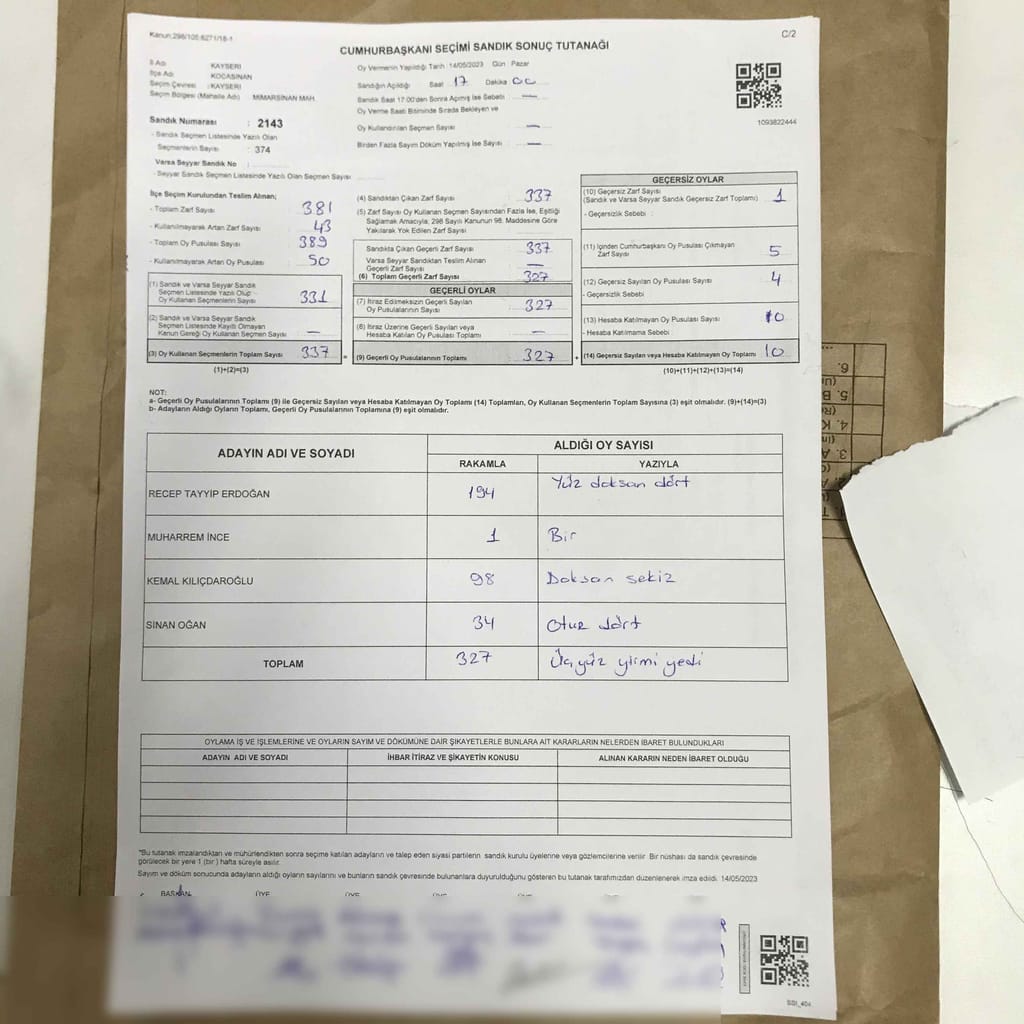 Kanun:298/105.6271/18-1
C/2
CUMHURBAŞKANI SEÇİMİ SANDIK SONUÇ TUTANAĞI
İl Adı KAYSERİ
İlçe Adı KOCASİNAN
Seçim Çevresi : KAYSERİ
Seçim Bölgesi (Mahalle Adı) MİMARSİNAN MAH.
Sandık Numarası : 2143
- Sandık Seçmen Listesinde Yazılı Olan
Seçmenlerin Sayısı : 374
Varsa Seyyar Sandık No :
- Seyyar Sandık Seçmen Listesinde Yazılı Olan Seçmen Sayısı
Oy Vermenin Yapıldığı Tarih :14/05/2023 Gün Pazar
Sandığın Açıldığı Saat 17 Dakika 00
Sandık Saat 17:00'den Sonra Açımış İse Sebebi —
Oy Verme Saati Bitiminde Sırada Bekleyen ve
Oy Kullandırılan Seçmen Sayısı —
Birden Fazla Sayım Döküm Yapılmış İse Sayısı —
1093822444
İlçe Seçim Kurulundan Teslim Alınan;
- Toplam Zarf Sayısı 381
- Kullanılmayarak Artan Zarf Sayısı 43
- Toplam Oy Pusulası Sayısı 389
- Kullanılmayarak Artan Oy Pusulası 50
(1) Sandık ve Varsa Seyyar Sandık
Seçmen Listesinde Yazılı Olup
Oy Kullanan Seçmenlerin Sayısı 331
(2) Sandık ve Varsa Seyyar Sandık
Seçmen Listesinde Kayıtlı Olmayan
Kanun Gereği Oy Kullanan Seçmen Sayısı —
(3) Oy Kullanan Seçmenlerin Toplam Sayısı 337 =
(1)+(2)=(3)
(4) Sandıktan Çıkan Zarf Sayısı 337
(5) Zarf Sayısı Oy Kullanan Seçmen Sayısından Fazla İse, Eşitliği
Sağlamak Amacıyla, 298 Sayılı Kanunun 98. Maddesine Göre
Yakılarak Yok Edilen Zarf Sayısı
Sandıkta Çıkan Geçerli Zarf Sayısı 337
Varsa Seyyar Sandıktan Teslim Alınan
Geçerli Zarf Sayısı —
(6) Toplam Geçerli Zarf Sayısı 327
GEÇERLİ OYLAR
(7) İtiraz Edilmeksizin Geçerli Sayılan
Oy Pusulalarının Sayısı 327
(8) İtiraz Üzerine Geçerli Sayılan veya
Hesaba Katılan Oy Pusulası Toplamı —
(9) Geçerli Oy Pusulalarının Toplamı 327 +
GEÇERSİZ OYLAR
(10) Geçersiz Zarf Sayısı
(Sandık ve Varsa Seyyar Sandık Geçersiz Zarf Toplamı) 1
- Geçersizlik Sebebi :
(11) İçinden Cumhurbaşkanı Oy Pusulası Çıkmayan
Zarf Sayısı 5
(12) Geçersiz Sayılan Oy Pusulası Sayısı 4
- Geçersizlik Sebebi
(13) Hesaba Katılmayan Oy Pusulası Sayısı 10
- Hesaba Katılmama Sebebi
(14) Geçersiz Sayılan veya Hesaba Katılmayan Oy Toplamı 10
(10)+(11)+(12)+(13)=(14)
NOT:
a- Geçerli Oy Pusulalarının Toplamı (9) ile Geçersiz Sayılan veya Hesaba Katılmayan Oy Toplamı (14) Toplamları, Oy Kullanan Seçmenlerin Toplam Sayısına (3) eşit olmalıdır. (9)+(14)=(3)
b- Adayların Aldığı Oyların Toplamı, Geçerli Oy Pusulalarının Toplamına (9) eşit olmalıdır.
ADAYIN ADI VE SOYADI
ALDIĞI OY SAYISI
RAKAMLA YAZIYLA
RECEP TAYYİP ERDOĞAN 194 Yüz doksan dört
MUHARREM İNCE 1 Bir
KEMAL KILIÇDAROĞLU 98 Doksan sekiz
SİNAN OĞAN 34 Otuz dört
TOPLAM 327 Üçyüz yirmi yedi
OYLAMA İŞ VE İŞLEMLERİNE VE OYLARIN SAYIM VE DÖKÜMÜNE DAİR ŞİKAYETLERLE BUNLARA AİT KARARLARIN NELERDEN İBARET BULUNDUKLARI
ADAYIN ADI VE SOYADI İHBAR İTİRAZ VE ŞİKAYETİN KONUSU ALINAN KARARIN NEDEN İBARET OLDUĞU
"Bu tutanak imzalandıktan ve mühürlendikten sonra seçime katılan adayların ve talep eden siyasi partilerin sandık kurulu üyelerine veya gözlemcilerine verilir. Bir nüshası da sandık çevresinde
görülecek bir yere 1 (bir) hafta süreyle asılır.
Sayım ve döküm sonucunda adayların aldığı oyların sayılarını ve bunların sandık çevresinde bulunanlara duyurulduğunu gösteren bu tutanak tarafımızdan düzenlenerek imza edildi. 14/05/2023
BAŞKAN ÜYE ÜYE ÜYE